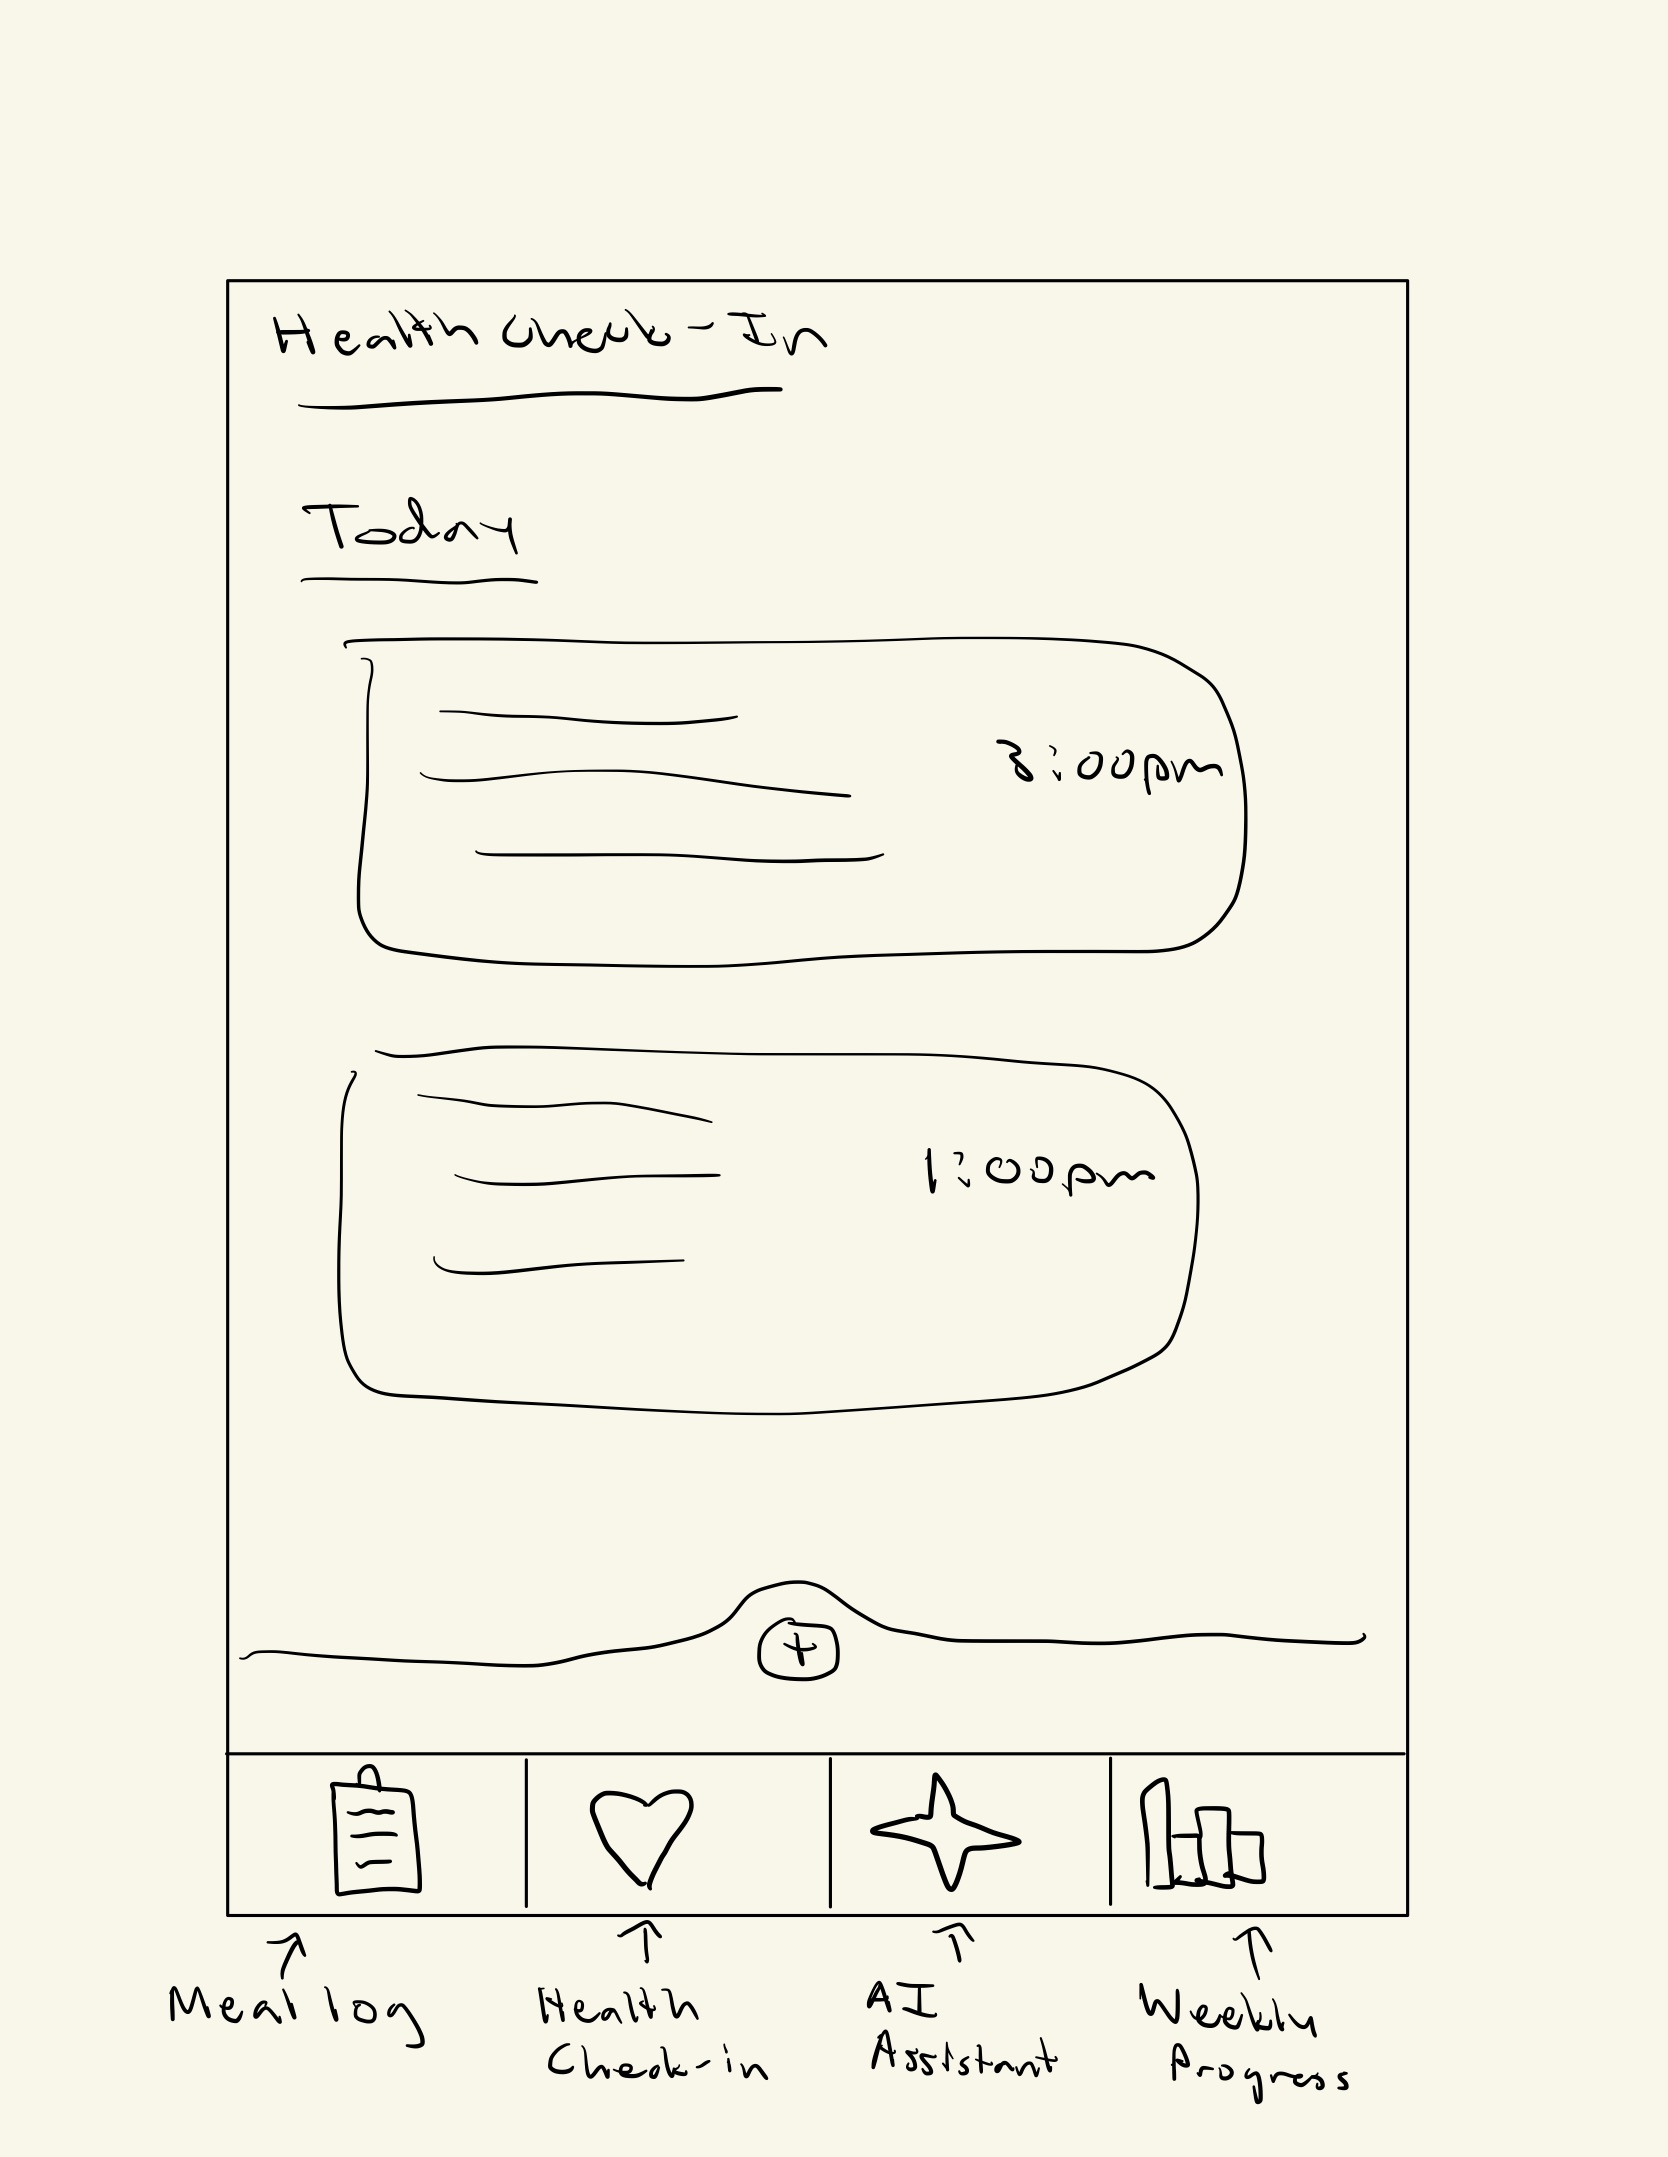 Health Check-In
Today
3:00pm
1:00pm
+
Meal log
Health
Check-in
AI
Assistant
Weekly
Progress